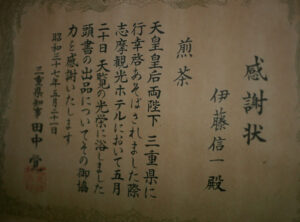 感謝状
伊藤信一殿
煎茶
天皇皇后両陛下 三重県に
行幸啓あそばされました際
志摩観光ホテルにおいて五月
二十日 天覧の光栄に浴しました
頭書の出品についてその御協
力を感謝いたします
昭和三十七年五月二十一日
三重県知事 田中覚